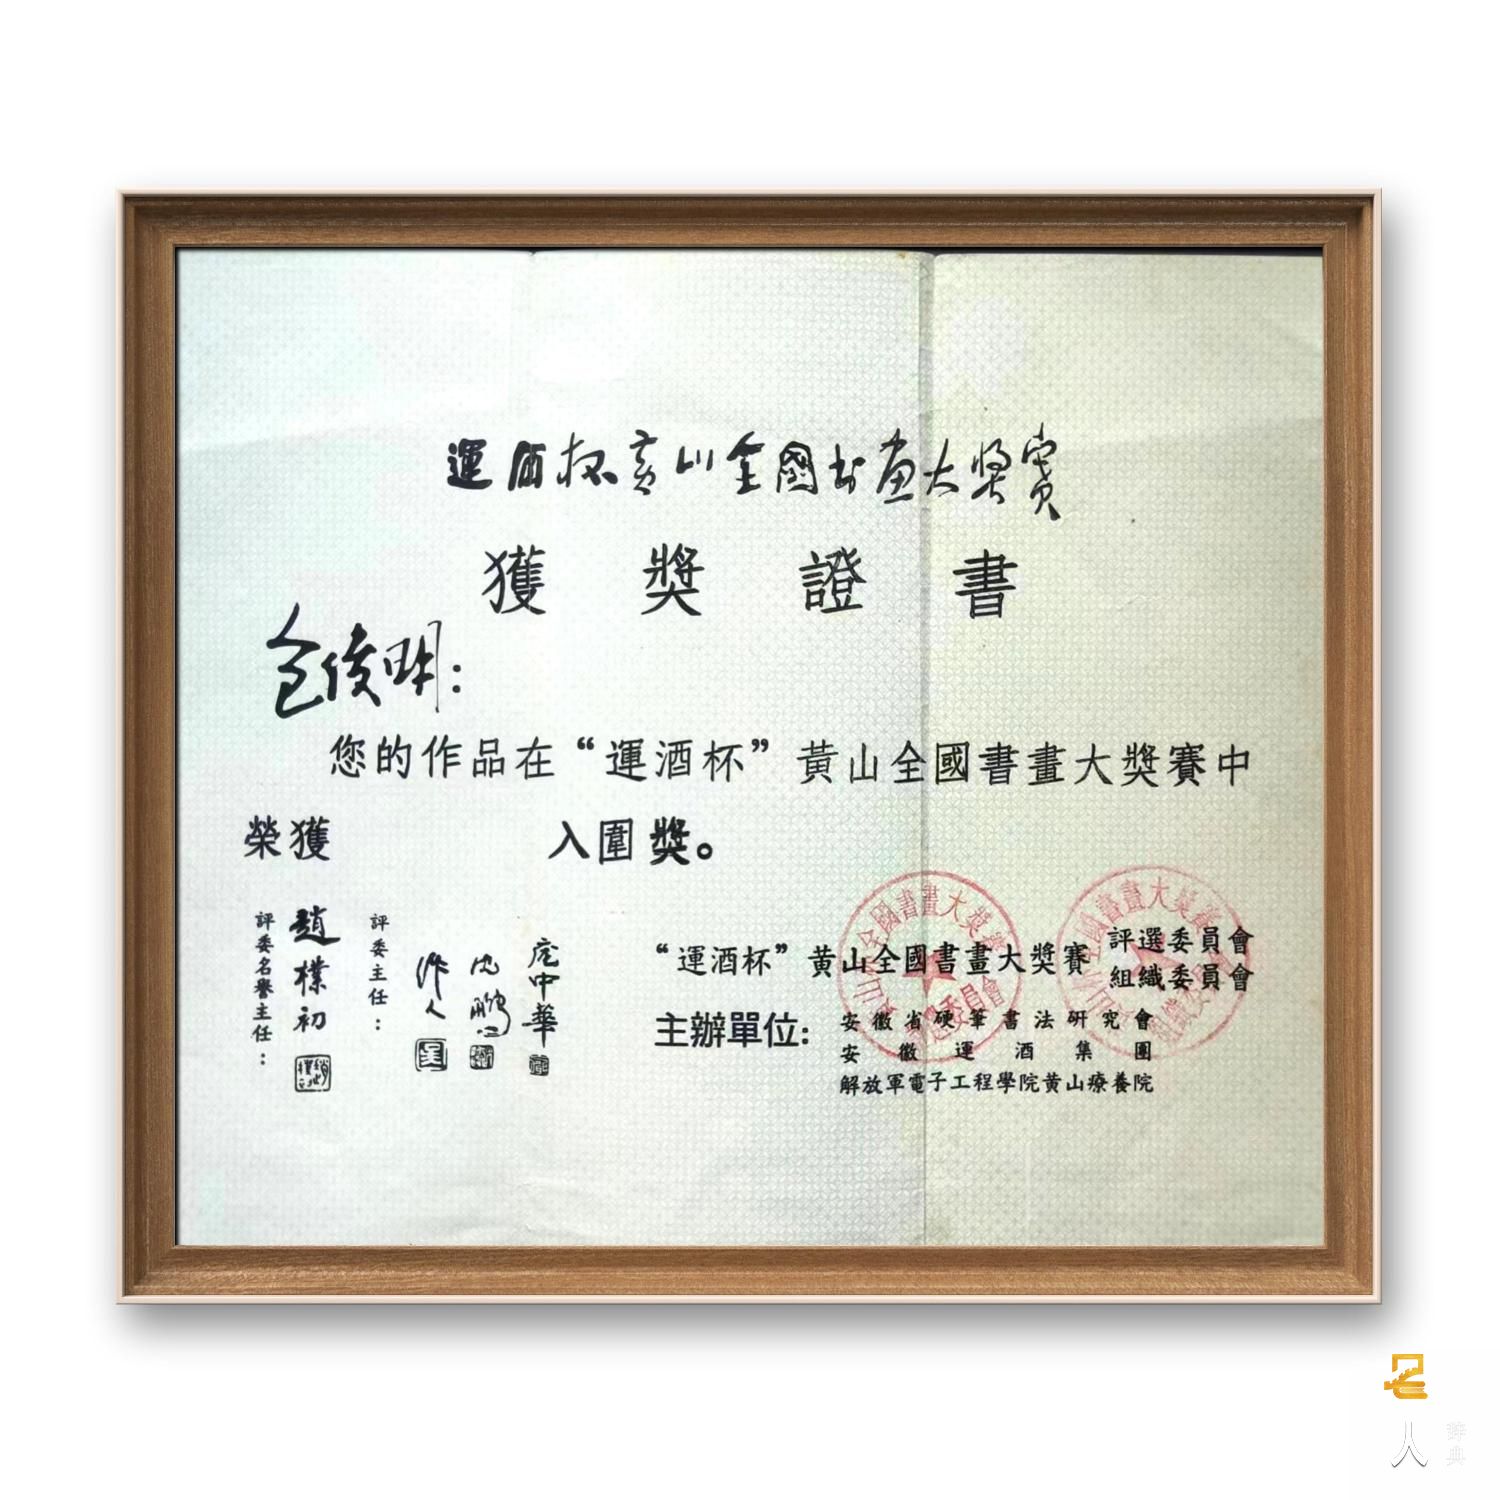 運酒杯黄山全國书画大奬賽
獲獎證書
包俊明:
您的作品在“運酒杯”黄山全國書畫大獎賽中
榮獲 入圍獎。
評委名譽主任:
趙樸初
評委主任:
作人
沈鵬
庞中華
“運酒杯”黄山全國書畫大獎賽 評選委員會
組織委員會
主辦單位:
安徽省硬筆書法研究會
安徽運酒集團
解放軍電子工程學院黄山療養院
人
辞典